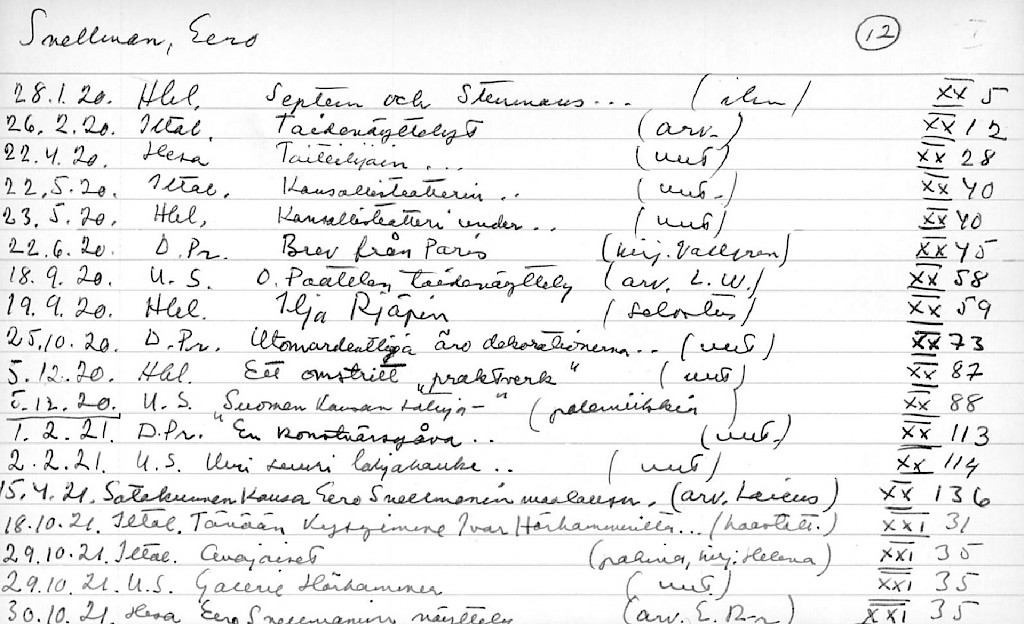 Snellman, Eero (12)
28.1.20. Hbl. Septem och Stenmans... (ilm) XX 5
26.2.20. Iltal. Taidenäyttelyt (arv.) XX 12
22.4.20. Hesa Taiteilijain... (uut) XX 28
22.5.20. Iltal. Kansallisteatterin.. (uut.) XX 40
23.5.20. Hbl, Kansallisteatteri under.. (uut) XX 40
22.6.20. D.Pr. Brev från Paris (kirj. Vallgren) XX 45
18.9.20. U.S. O. Paatelan taidenäyttely (arv. L.W.) XX 58
19.9.20. Hbl. Ilja Rjäpin (selostus) XX 59
25.10.20. D.Pr. Utomordentliga äro dekorationerna.. (uut) XX 73
5.12.20. Hbl. Ett omstritt „praktverk" (uut) XX 87
5.12.20. U.S. „Suomen Kansan lahja-" (polemiikkia) XX 88
1.2.21. D.Pr. "En konstnärsgåva.. (uut.) XX 113
2.2.21. U.S. Uusi suuri lahjahanke.. (uut) XX 114
15.4.21. Satakunnan Kansa Eero Snellmanin maalausn. (arv. Laicus) XX 136
18.10.21. Iltal. Tänään kysymme Ivar Hörhammerilta... (haastatt.) XXI 31
29.10.21. Iltal. Avajaiset (pakina, kirj. Helena) XXI 35
29.10.21. U.S. Galerie Hörhammer (uut.) XXI 35
30.10.21. Hesa Eero Snellmanin näyttely (arv. E. R-r) XXI 35